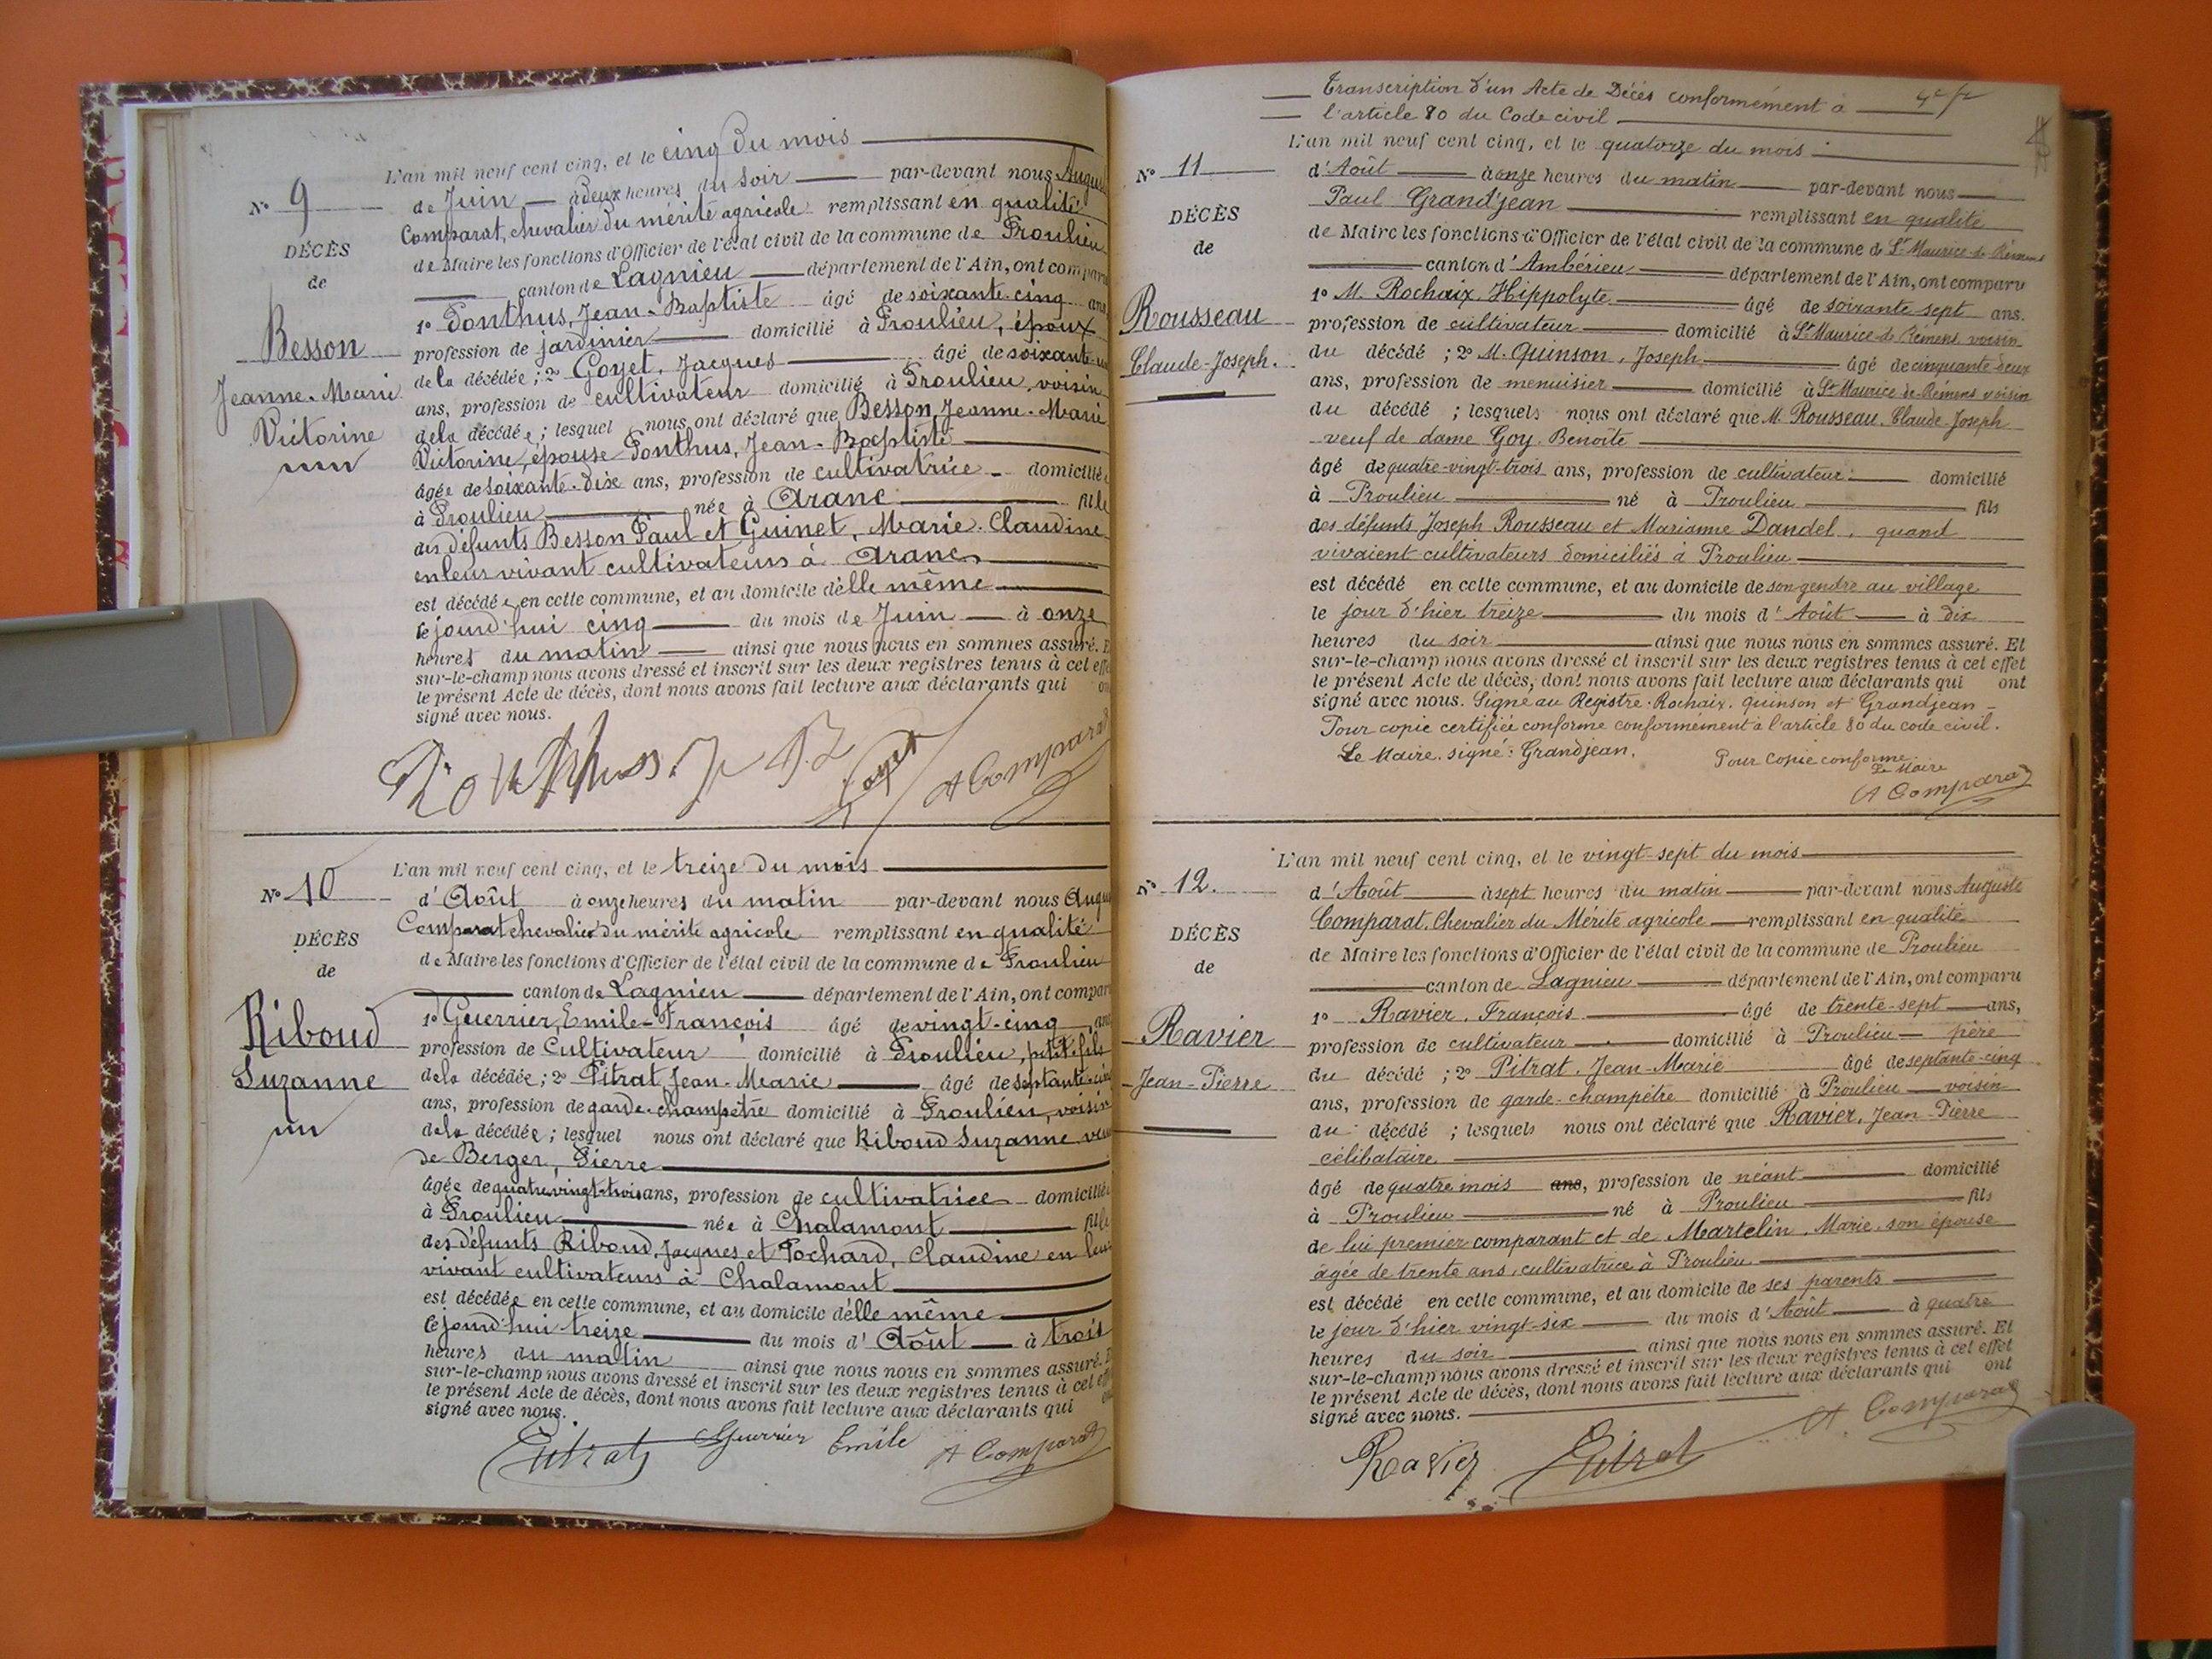 L'an mil neuf cent cinq, et le cinq du mois
N° 9
de Juin à deux heures du soir par-devant nous
Comparat, chevalier du mérite agricole remplissant en qualité
DÉCÈS
de Maire les fonctions d'Officier de l'état civil de la commune de Proulieu
de
canton de Lagnieu département de l'Ain, ont
1° Ponthus, Jean-Baptiste âgé de soixante-cinq ans
Besson
profession de jardinier domicilié à Proulieu, époux
Jeanne-Marie
de la décédée ; 2° Goyet, Jacques âgé de
ans, profession de cultivateur domicilié à Proulieu, voisin
Victorine
de la décédée ; lesquel nous ont déclaré que Besson, Jeanne-Marie
Victorine, épouse Ponthus, Jean-Baptiste
âgée de soixante-dix ans, profession de cultivatrice domiciliée
à Proulieu née à Aranc fille
des défunts Besson Paul et Guinet, Marie-Claudine
en leur vivant cultivateurs à Aranc
est décédée en cette commune, et au domicile d'elle même
le jourd'hui cinq du mois de Juin à onze
heures du matin ainsi que nous nous en sommes assuré.
sur-le-champ nous avons dressé et inscrit sur les deux registres tenus à cet
le présent Acte de décès, dont nous avons fait lecture aux déclarants qui
signé avec nous.
Ponthus. J B Goyet A Comparat
L'an mil neuf cent cinq, et le treize du mois
N° 10
d'Août à onze heures du matin par-devant nous
Comparat chevalier du mérite agricole remplissant en qualité
DÉCÈS
de Maire les fonctions d'Officier de l'état civil de la commune de Proulieu
de
canton de Lagnieu département de l'Ain, ont
Riboud
1° Guerrier, Emile-François âgé de vingt-cinq
profession de Cultivateur domicilié à Proulieu, petit-fils
Suzanne
de la décédée ; 2° Pitrat, Jean-Marie âgé de
ans, profession de garde-champêtre domicilié à Proulieu, voisin
de la décédée ; lesquel nous ont déclaré que Riboud Suzanne
de Berger, Pierre
âgée de quatre-vingt-trois ans, profession de cultivatrice domiciliée
à Proulieu née à Chalamont fille
des défunts Riboud, Jacques et Pochard, Claudine en leur
vivant cultivateurs à Chalamont
est décédée en cette commune, et au domicile d'elle même
le jourd'hui treize du mois d'Août à trois
heures du matin ainsi que nous nous en sommes assuré.
sur-le-champ nous avons dressé et inscrit sur les deux registres tenus à cet
le présent Acte de décès, dont nous avons fait lecture aux déclarants qui
signé avec nous.
Pitrat Guerrier Emile A Comparat
Transcription d'un Acte de Décès conformément à
l'article 80 du Code civil
L'an mil neuf cent cinq, et le quatorze du mois
N° 11
d'Août à onze heures du matin par-devant nous
Paul Grandjean remplissant en qualité
DÉCÈS
de Maire les fonctions d'Officier de l'état civil de la commune de St Maurice-de-Rémens
de
canton d'Ambérieu département de l'Ain, ont comparu
1° M. Rochaix. Hippolyte. âgé de soixante sept ans.
Rousseau
profession de cultivateur domicilié à St Maurice-de-Rémens voisin
Claude-Joseph.
du décédé ; 2° M. Quinson, Joseph âgé de cinquante deux
ans, profession de menuisier domicilié à St Maurice-de-Rémens voisin
du décédé ; lesquels nous ont déclaré que M. Rousseau. Claude-Joseph
veuf de dame Goy. Benoîte
âgé de quatre-vingt-trois ans, profession de cultivateur domicilié
à Proulieu né à Proulieu fils
des défunts Joseph Rousseau et Marianne Dandel, quand
vivaient cultivateurs domiciliés à Proulieu
est décédé en cette commune, et au domicile de son gendre au village
le jour d'hier treize du mois d'Août à dix
heures du soir ainsi que nous nous en sommes assuré. Et
sur-le-champ nous avons dressé et inscrit sur les deux registres tenus à cet effet
le présent Acte de décès, dont nous avons fait lecture aux déclarants qui ont
signé avec nous. Signé au Registre: Rochaix. Quinson et Grandjean
Pour copie certifiée conforme conformément à l'article 80 du code civil.
Le Maire. signé: Grandjean.
Pour copie conforme
Le Maire
A Comparat
L'an mil neuf cent cinq, et le vingt-sept du mois
N° 12.
d'Août à sept heures du matin par-devant nous Auguste
Comparat. Chevalier du Mérite agricole remplissant en qualité
DÉCÈS
de Maire les fonctions d'Officier de l'état civil de la commune de Proulieu
de
canton de Lagnieu département de l'Ain, ont comparu
1° Ravier. François âgé de trente-sept ans,
Ravier
profession de cultivateur domicilié à Proulieu père
Jean-Pierre
du décédé ; 2° Pitrat. Jean-Marie âgé de septante-cinq
ans, profession de garde-champêtre domicilié à Proulieu voisin
du décédé ; lesquels nous ont déclaré que Ravier, Jean-Pierre
célibataire
âgé de quatre mois ans, profession de néant domicilié
à Proulieu né à Proulieu fils
de lui premier comparant et de Martelin, Marie, son épouse
âgée de trente ans, cultivatrice à Proulieu
est décédé en cette commune, et au domicile de ses parents
le jour d'hier vingt-six du mois d'Août à quatre
heures du soir ainsi que nous nous en sommes assuré. Et
sur-le-champ nous avons dressé et inscrit sur les deux registres tenus à cet effet
le présent Acte de décès, dont nous avons fait lecture aux déclarants qui ont
signé avec nous.
Ravier Pitrat A. Comparat